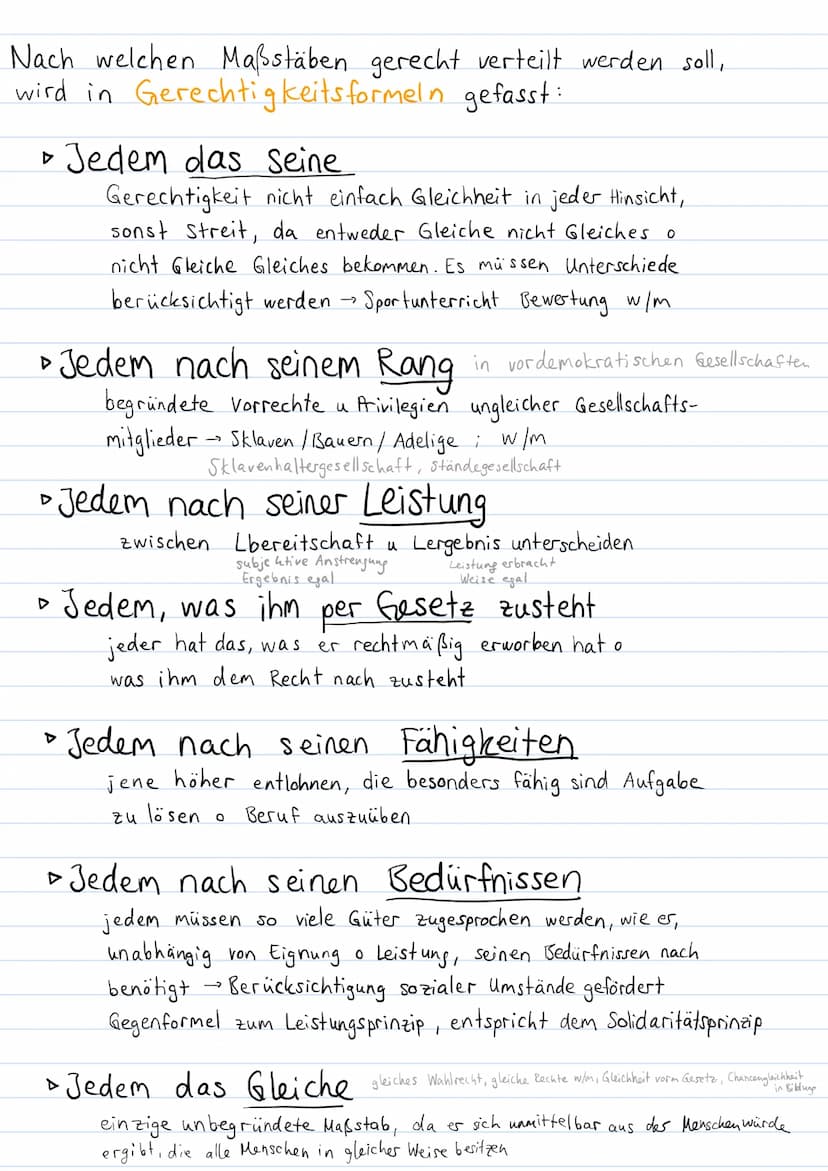 Nach welchen Maßstäben gerecht verteilt werden soll,
wird in Gerechtigkeitsformeln gefasst:
▹ Jedem das Seine
Gerechtigkeit nicht einfach Gleichheit in jeder Hinsicht,
sonst Streit, da entweder Gleiche nicht Gleiches o
nicht Gleiche Gleiches bekommen. Es müssen Unterschiede
berücksichtigt werden → Sportunterricht Bewertung w/m
▹ Jedem nach seinem Rang in vordemokratischen Gesellschaften
begründete Vorrechte u Privilegien ungleicher Gesellschafts-
mitglieder → Sklaven / Bauern / Adelige ; w/m
Sklavenhaltergesellschaft, Ständegesellschaft
▹ Jedem nach seiner Leistung
zwischen Lbereitschaft u Lergebnis unterscheiden
subjektive Anstrengung Leistung erbracht
Ergebnis egal Weise egal
▹ Jedem, was ihm per Gesetz zusteht
jeder hat das, was er rechtmäßig erworben hat o
was ihm dem Recht nach zusteht
▹ Jedem nach seinen Fähigkeiten
jene höher entlohnen, die besonders fähig sind Aufgabe
zu lösen o Beruf auszuüben
▹ Jedem nach seinen Bedürfnissen
jedem müssen so viele Güter zugesprochen werden, wie er,
unabhängig von Eignung o Leistung, seinen Bedürfnissen nach
benötigt → Berücksichtigung sozialer Umstände gefördert
Gegenformel zum Leistungsprinzip, entspricht dem Solidaritätsprinzip
▹ Jedem das Gleiche gleiches Wahlrecht, gleiche Rechte w/m, Gleichheit vorm Gesetz, Chancengleichheit
in Bildung
einzige unbegründete Maßstab, da er sich unmittelbar aus der Menschenwürde
ergibt, die alle Menschen in gleicher Weise besitzen